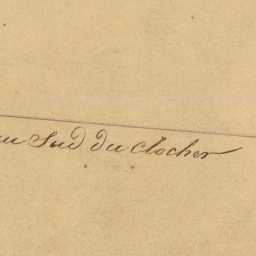 au Sud du clocher